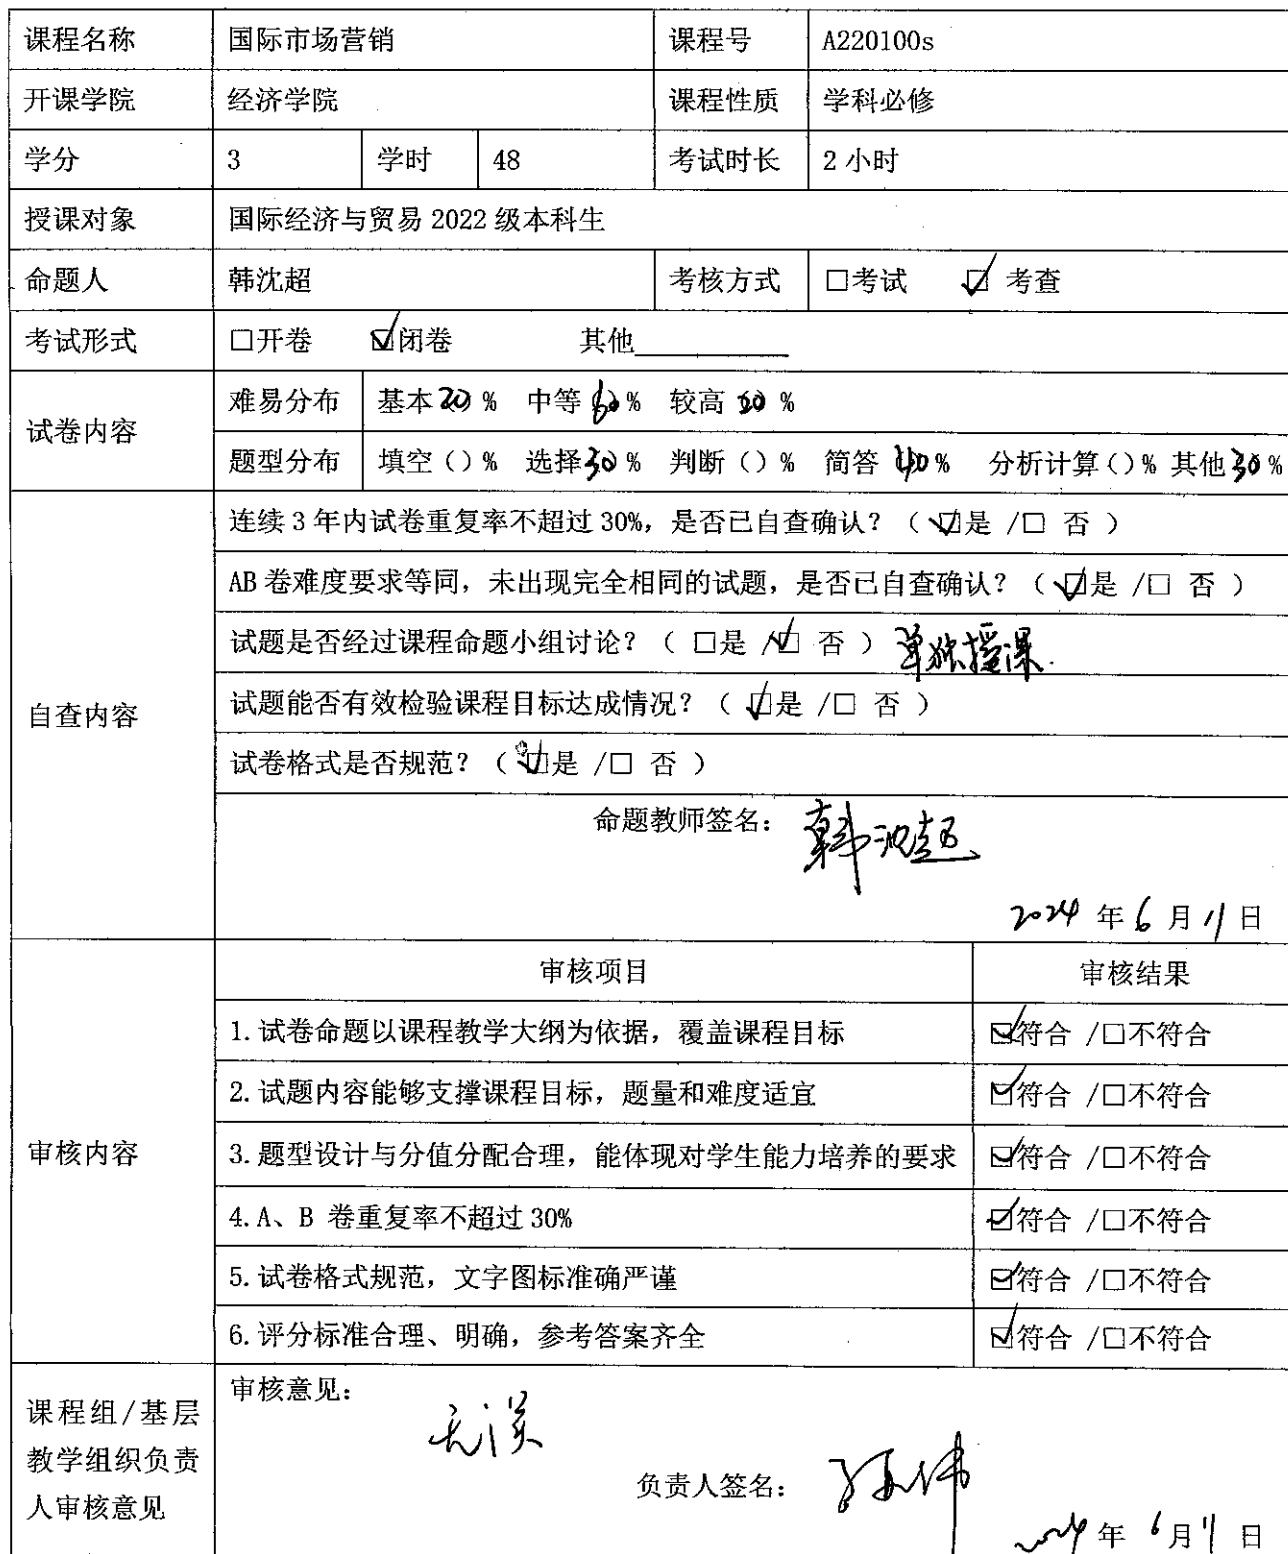 课程名称 国际市场营销 课程号 A220100s
开课学院 经济学院 课程性质 学科必修
学分 3 学时 48 考试时长 2小时
授课对象 国际经济与贸易2022级本科生
命题人 韩沈超 考核方式 □考试 ☑考查
考试形式 □开卷 ☑闭卷 其他________
试卷内容 难易分布 基本20% 中等60% 较高20%
题型分布 填空()% 选择30% 判断()% 简答40% 分析计算()% 其他30%
自查内容 连续3年内试卷重复率不超过30%，是否已自查确认？（☑是/□ 否）
AB卷难度要求等同，未出现完全相同的试题，是否已自查确认？（☑是/□ 否）
试题是否经过课程命题小组讨论？（□是/☑ 否）单独授课.
试题能否有效检验课程目标达成情况？（☑是/□ 否）
试卷格式是否规范？（☑是/□ 否）
命题教师签名： 韩沈超
2024年6月11日
审核内容 审核项目 审核结果
1.试卷命题以课程教学大纲为依据，覆盖课程目标 ☑符合/□不符合
2.试题内容能够支撑课程目标，题量和难度适宜 ☑符合/□不符合
3.题型设计与分值分配合理，能体现对学生能力培养的要求 ☑符合/□不符合
4.A、B 卷重复率不超过30% ☑符合/□不符合
5.试卷格式规范，文字图标准确严谨 ☑符合/□不符合
6.评分标准合理、明确，参考答案齐全 ☑符合/□不符合
课程组/基层
教学组织负责
人审核意见
审核意见：
无误
负责人签名：
2024年6月11日